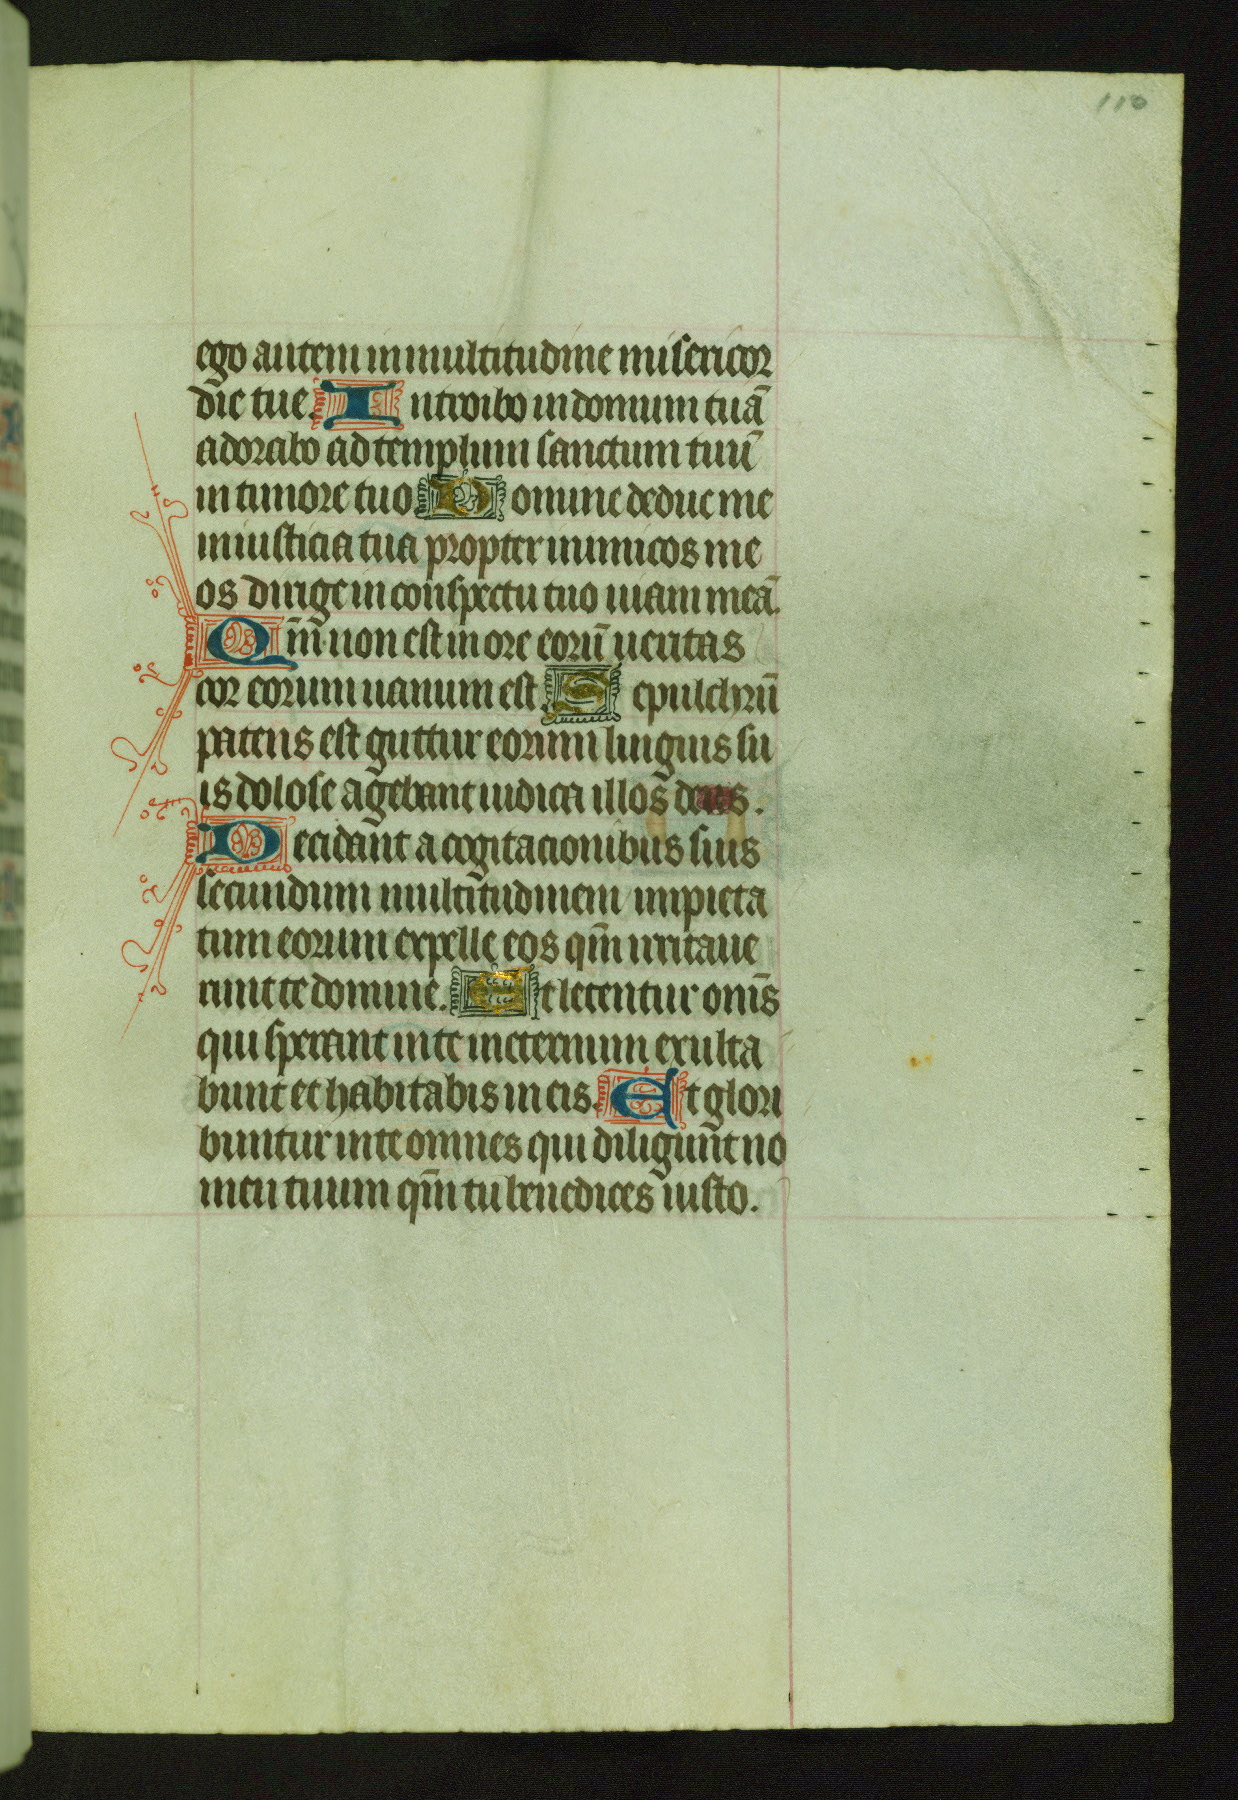 110
ego autem in multitudine misericor
die tue. Introibo in domum tuā
adorabo ad templum sanctum tuū
in timore tuo Domine deduc me
in iusticia tua propter inimicos me
os dirige in conspectu tuo uiam meā.
Qm̄ non est in ore eorū ueritas
cor eorum uanum est. Sepulchrū
patens est guttur eorum linguis su
is dolose agebant iudica illos deus.
Decidant a cogitacionibus suis
secundum multitudinem impieta
tum eorum expelle eos qm̄ irritaue
runt te domine. Et letentur om̄s
qui sperant in te in eternum exulta
bunt et habitabis in eis. Et glori
buntur in te omnes qui diligunt no
men tuum qm̄ tu benedices iusto.